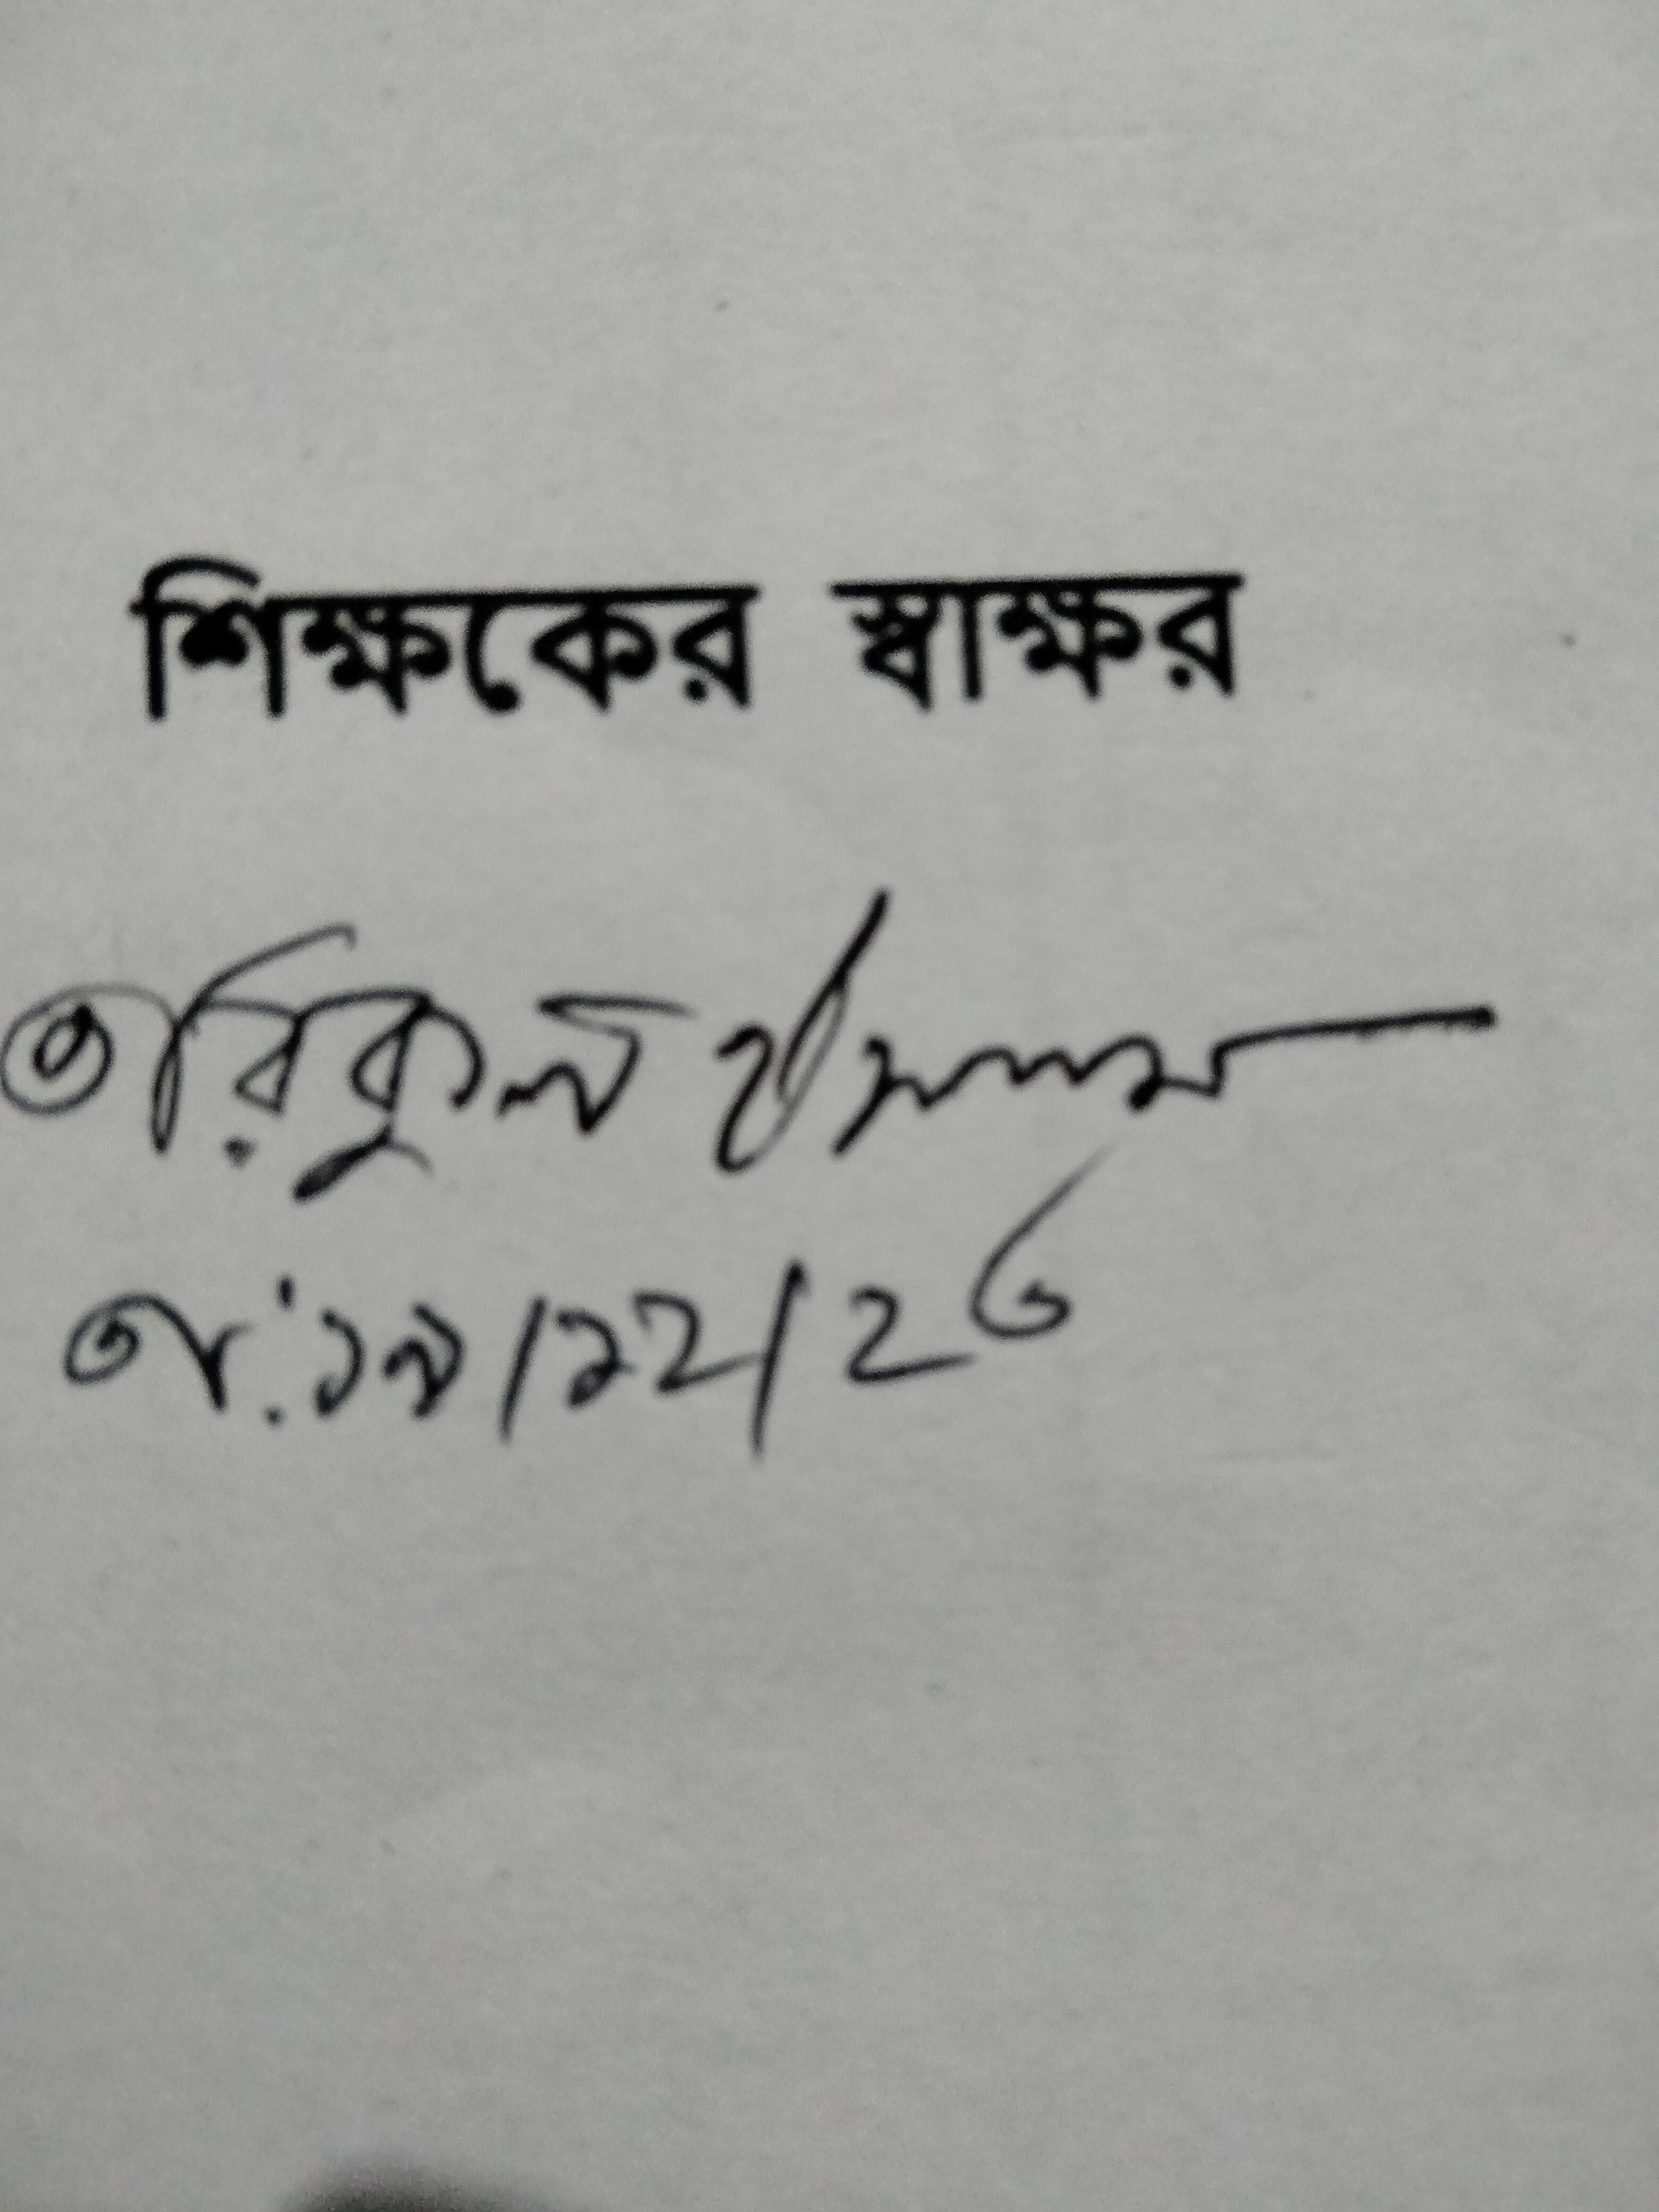 শিক্ষকের স্বাক্ষর
তরিকুল ইসলাম
তাং: ১৯/১২/২৩